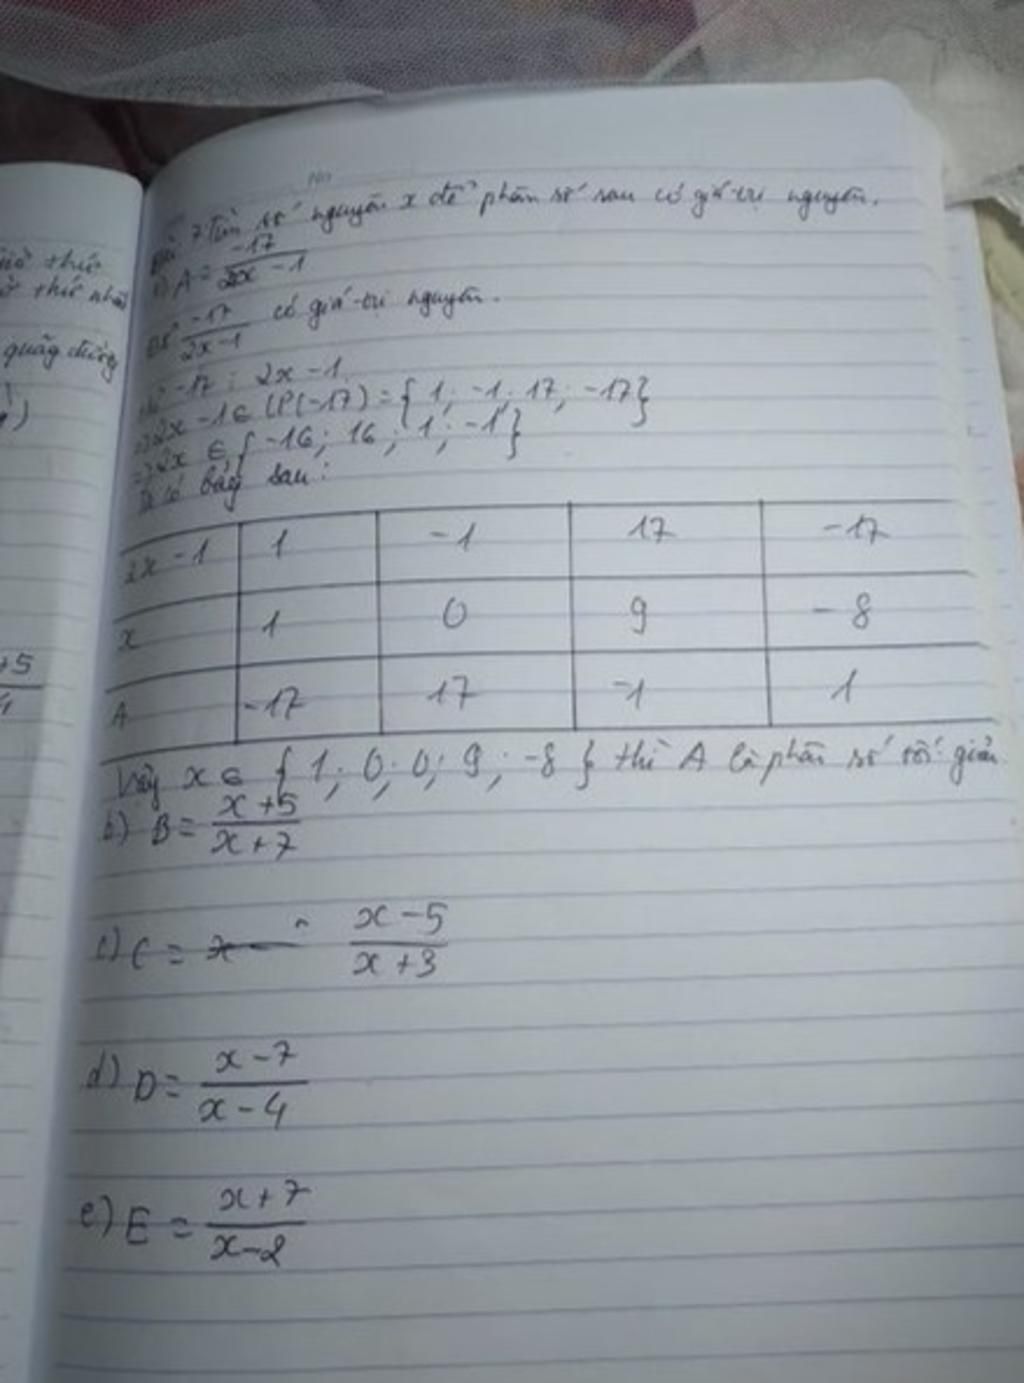 giờ thứ
ở thứ nhất
quãng đường
+5
No
Bài 7 Tìm số nguyên x để phân số sau có giá trị nguyên.
a) A = -17 / 2x - 1
Để -17 / 2x - 1 có giá trị nguyên.
-17 ⋮ 2x - 1
=> 2x - 1 ∈ Ư(-17) = { 1; -1; 17; -17 }
=> 2x ∈ { -16; 16; 1; -1 }
Ta có bảng sau:
2x - 1 | 1 | -1 | 17 | -17
x | 1 | 0 | 9 | -8
A | -17 | 17 | -1 | 1
Vậy x ∈ { 1; 0; 0; 9; -8 } thì A là phân số tối giản
b) B = x + 5 / x + 7
c) C = x - 5 / x + 3
d) D = x - 7 / x - 4
e) E = x + 7 / x - 2